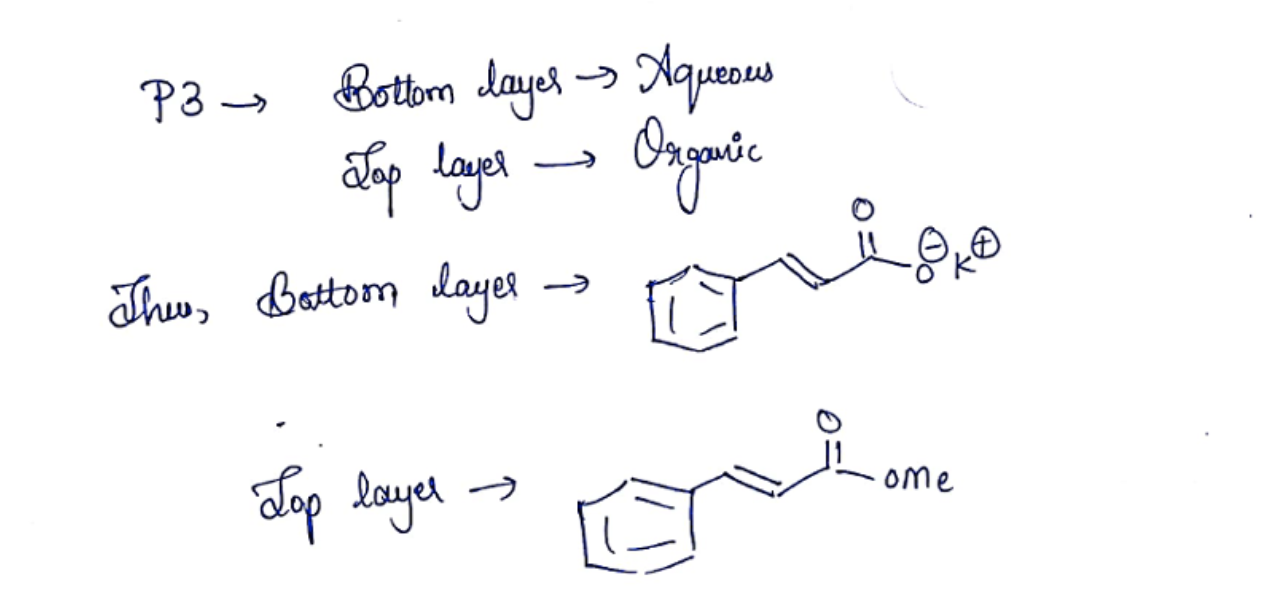 P3 → Bottom layer → Aqueous
Top layer → Organic
O
Thus, Bottom layer → O⊖ K⊕
O
Top layer → OMe